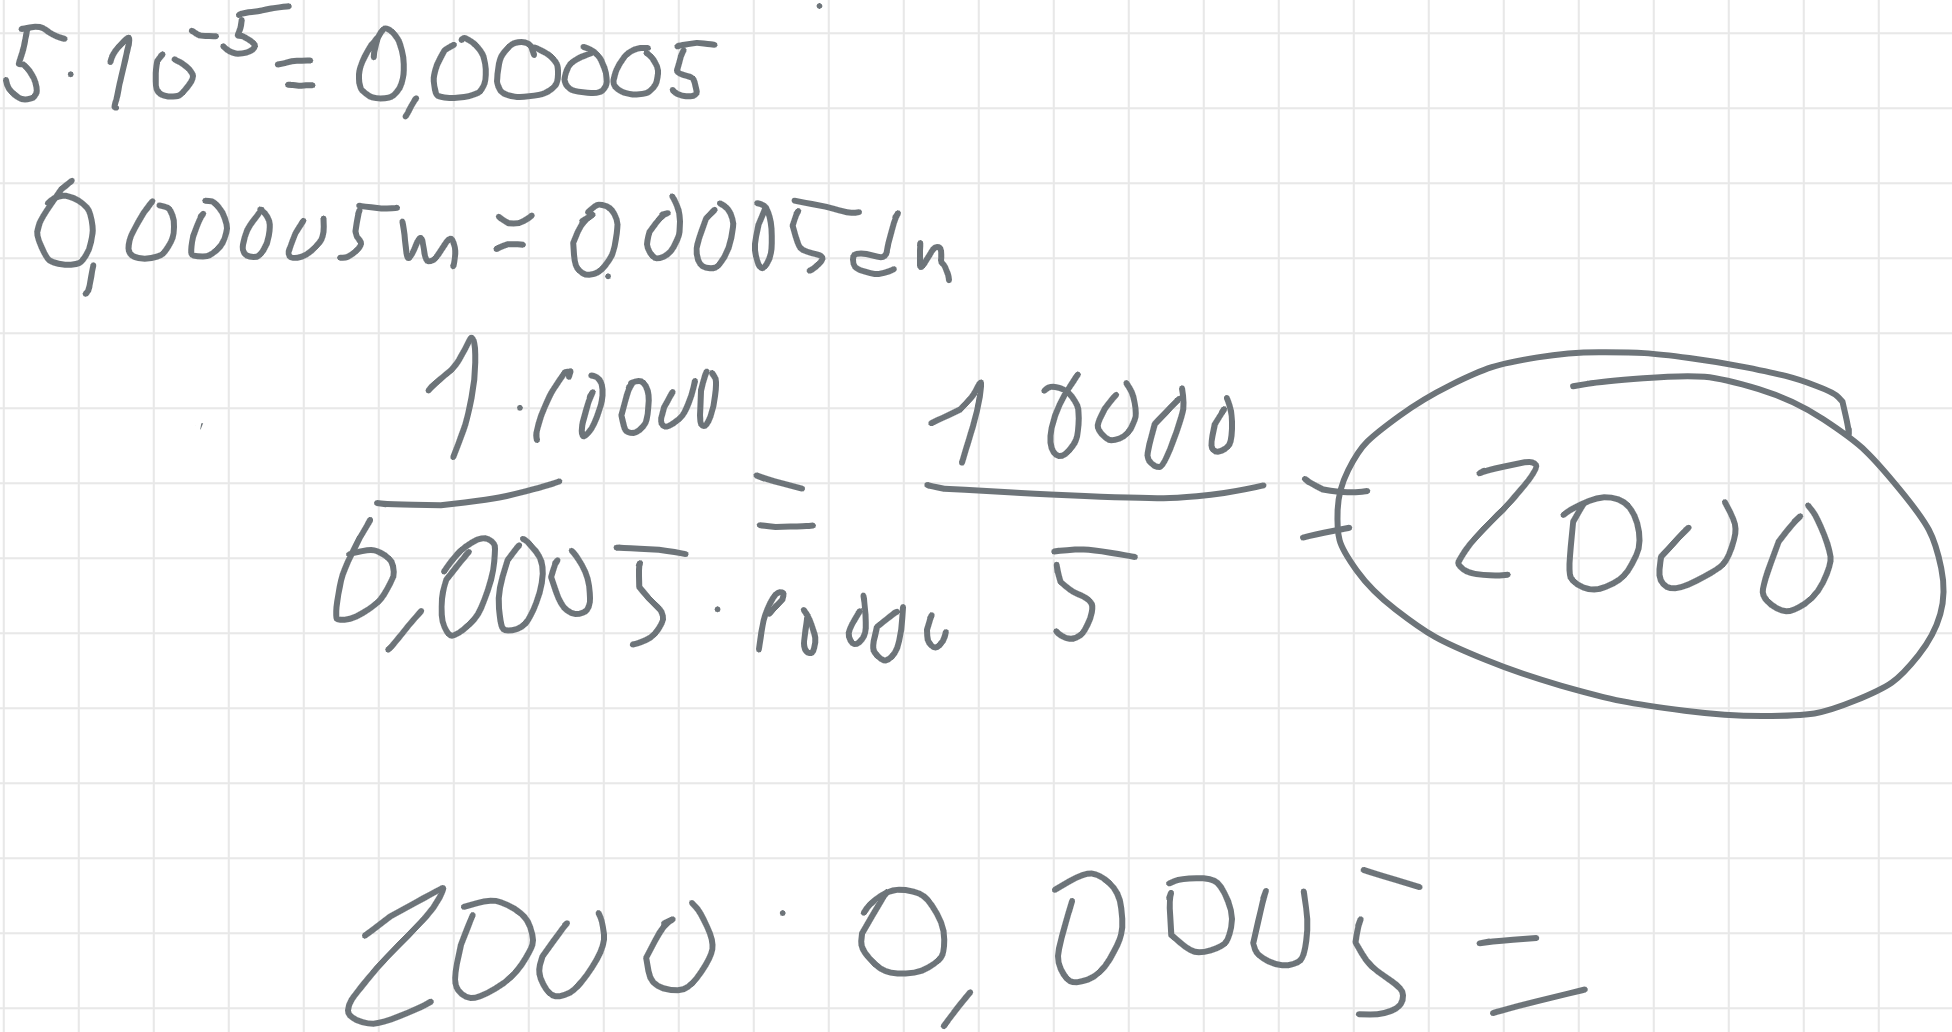 5·10⁻⁵ = 0,00005
0,00005m = 0.0005dm
1·10000 / 0,0005·10000 = 10000 / 5 = 2000
2000·0,0005 =